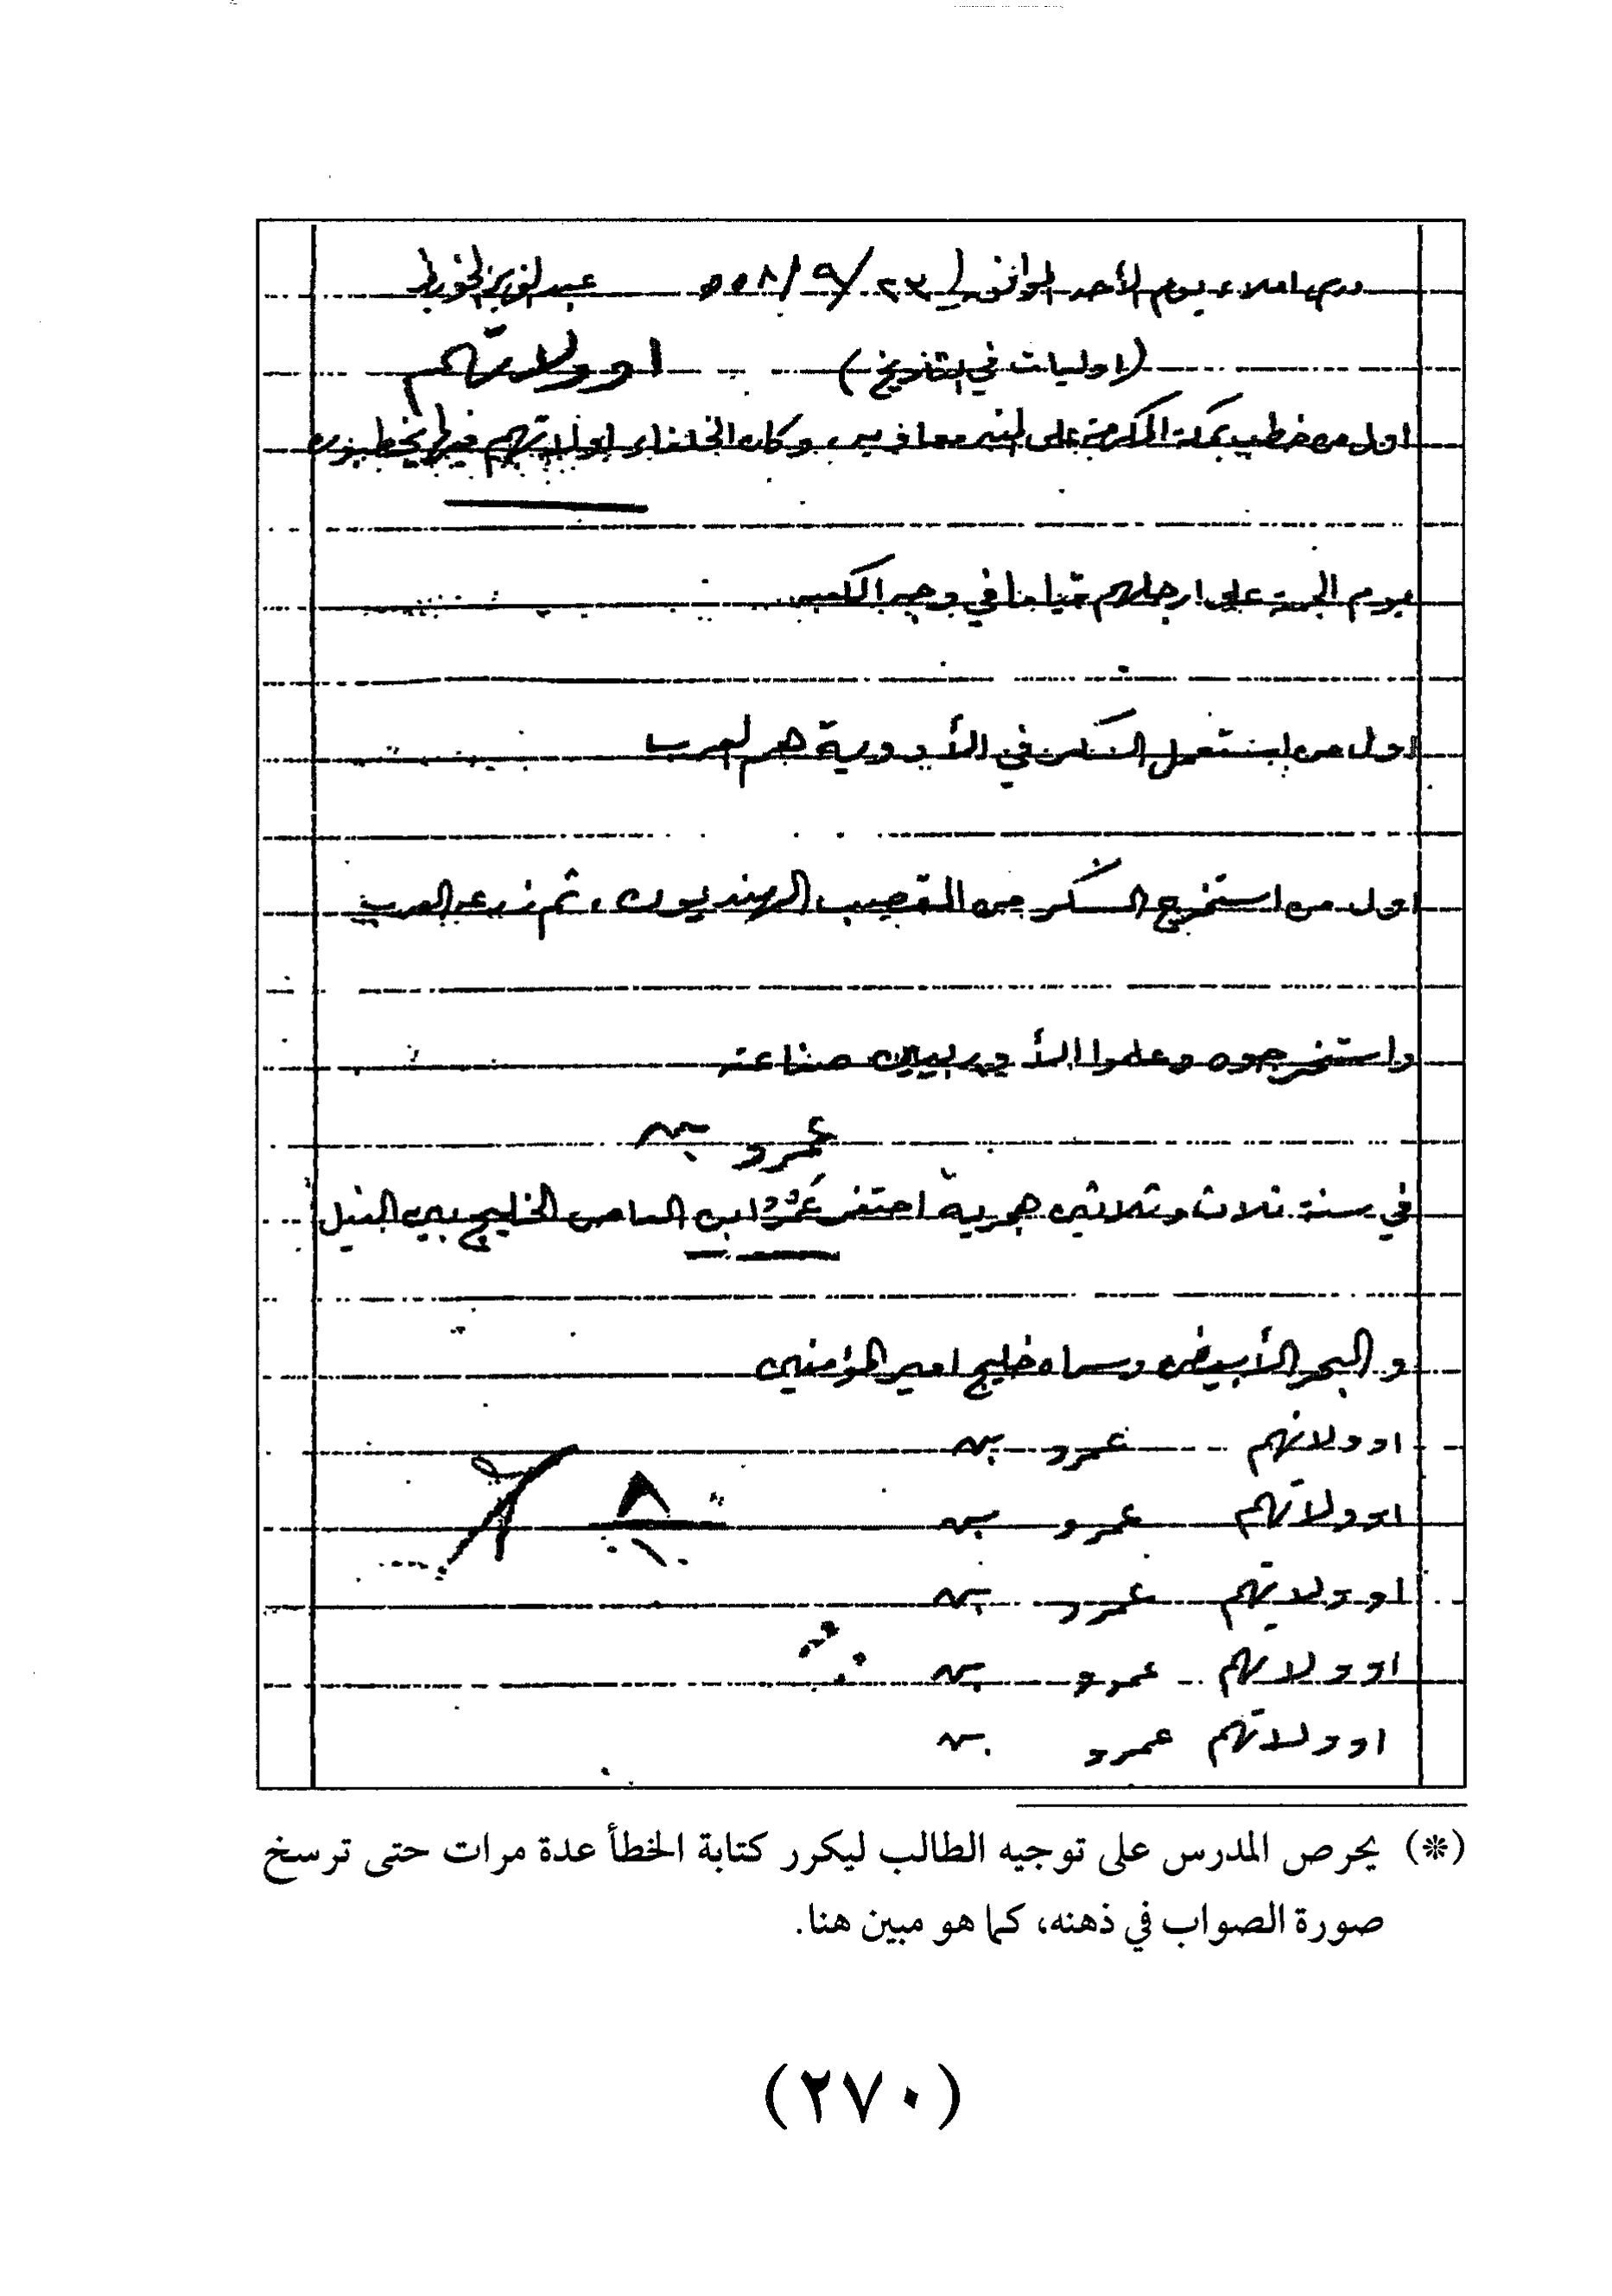 درس املاء يوم الأحد الموافق ٢٣/٩/
(اوليات في التاريخ) او ولاتهم
اول من خطب بمكة المكرمة على المنبر معاوية، وكان الخلفاء قبلها يخطبون
يوم الجمعة على ارجلهم قياما في وجه الكعبه
اول من استعمل السكر في الأدوية هم العرب
اول من استخرج السكر من القصب الهنديون، ثم زرعه العرب
واستخرجوه وعلموا الأوربيين صناعته
عمرو بن
في سنة ثلاث وثلاثين هجرية احتفر ابن العاص الخليج بين النيل
والبحر الأبيض وسماه خليج امير المؤمنين
او ولاتهم عمرو بن
او ولاتهم عمرو بن
او ولاتهم عمرو بن
او ولاتهم عمرو بن
او ولاتهم عمرو بن
(*) يحرص المدرس على توجيه الطالب ليكرر كتابة الخطأ عدة مرات حتى ترسخ
صورة الصواب في ذهنه، كما هو مبين هنا.
(٢٧٠)